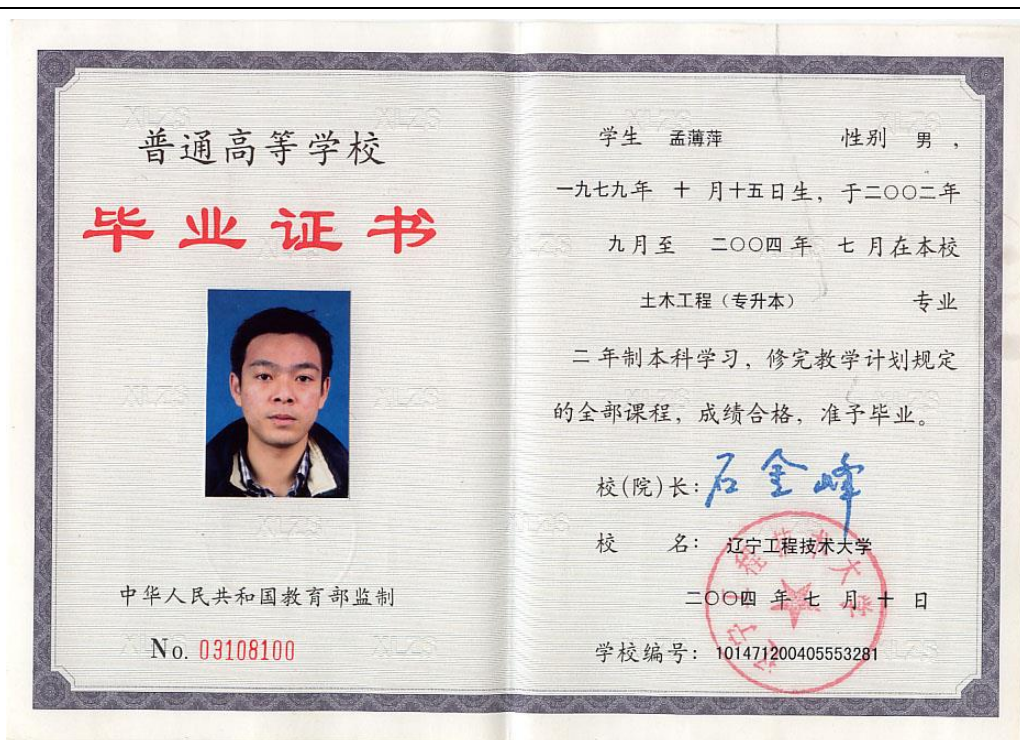 普通高等学校
毕业证书
中华人民共和国教育部监制
No. 03108100
学生 孟薄萍 性别 男，
一九七九年 十 月十五日生，于二〇〇二年
九月至 二〇〇四年 七月在本校
土木工程（专升本） 专业
二年制本科学习，修完教学计划规定
的全部课程，成绩合格，准予毕业。
校(院)长：石金峰
校 名：辽宁工程技术大学
二〇〇四 年 七 月 十 日
学校编号：101471200405553281
辽宁工程技术大学
XLZS